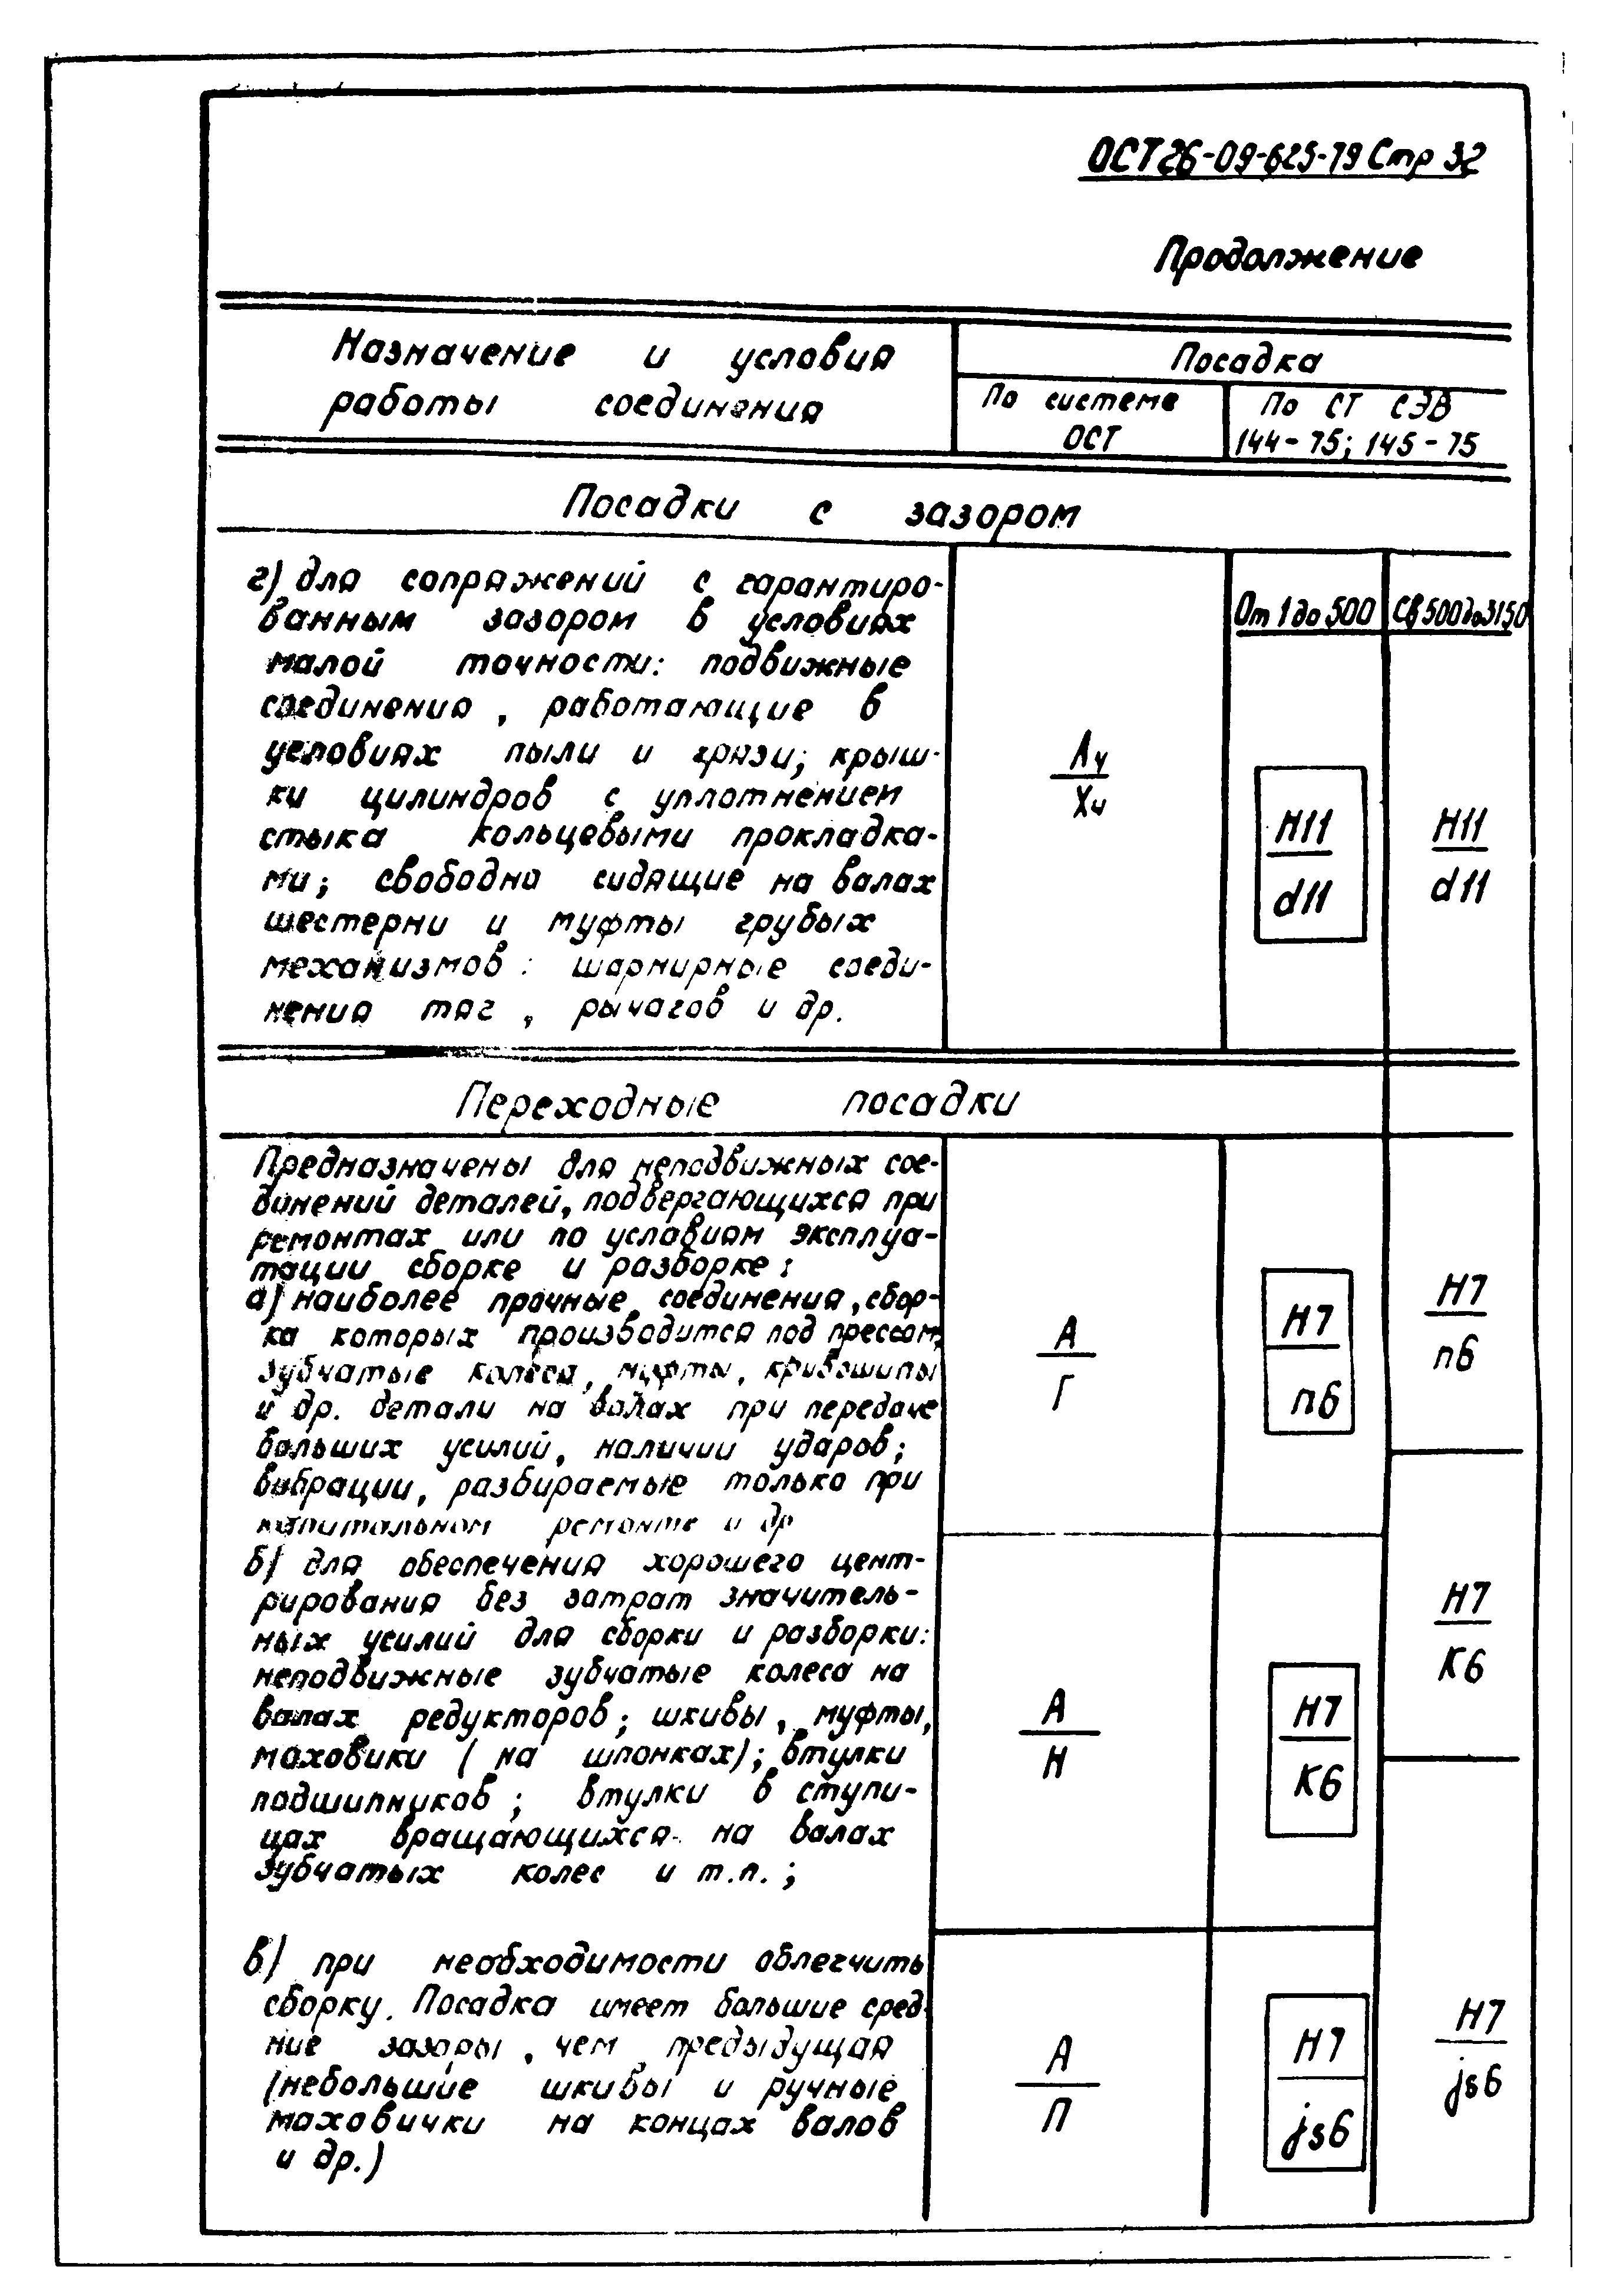 ОСТ26-09-625-79 Стр 32
Продолжение
Назначение и условия
работы соединения
Посадка
По системе
ОСТ
По СТ СЭВ
144-75; 145-75
Посадки с зазором
г) для сопряжений с гарантиро-
ванным зазором в условиях
малой точности: подвижные
соединения, работающие в
условиях пыли и грязи; крыш-
ки цилиндров с уплотнением
стыка кольцевыми прокладка-
ми; свободно сидящие на валах
шестерни и муфты грубых
механизмов: шарнирные соеди-
нения тяг, рычагов и др.
От 1 до 500
Св 500 до 3150
А4
Х4
H11
d11
H11
d11
Переходные посадки
Предназначены для неподвижных сое-
динений деталей, подвергающихся при
ремонтах или по условиям эксплуа-
тации сборке и разборке:
а) наиболее прочные соединения, сбор-
ка которых производится под прессом,
зубчатые колеса, муфты, кривошипы
и др. детали на валах при передаче
больших усилий, наличии ударов;
вибрации, разбираемые только при
капитальном ремонте и др
А
Г
H7
n6
H7
n6
б) для обеспечения хорошего цент-
рирования без затрат значитель-
ных усилий для сборки и разборки:
неподвижные зубчатые колеса на
валах редукторов; шкивы, муфты,
маховики (на шпонках); втулки
подшипников; втулки в ступи-
цах вращающихся на валах
зубчатых колес и т.п.;
А
Н
H7
К6
H7
К6
в) при необходимости облегчить
сборку. Посадка имеет большие сред-
ние зазоры, чем предыдущая
(небольшие шкивы и ручные
маховички на концах валов
и др.)
А
П
H7
js6
H7
js6